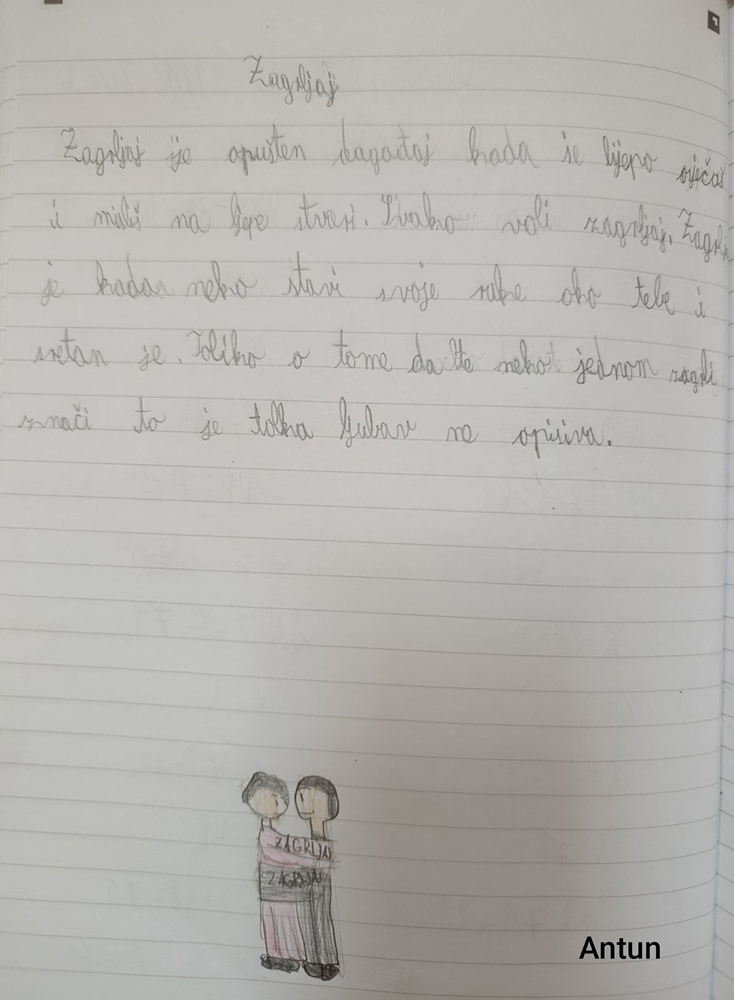 Zagrljaj
Zagrljaj je opušten događaj kada se lijepo osječaš
i misliš na ljepe stvari. Svako voli zagrljaj. Zagrljaj
je kada neko stavi svoje ruke oko tebe i
sretan je. Toliko o tome da te neko jednom zagrli
znači to je tolka ljubav ne opisiva.
ZAGRLJAJ
ZAGRLJAJ
Antun